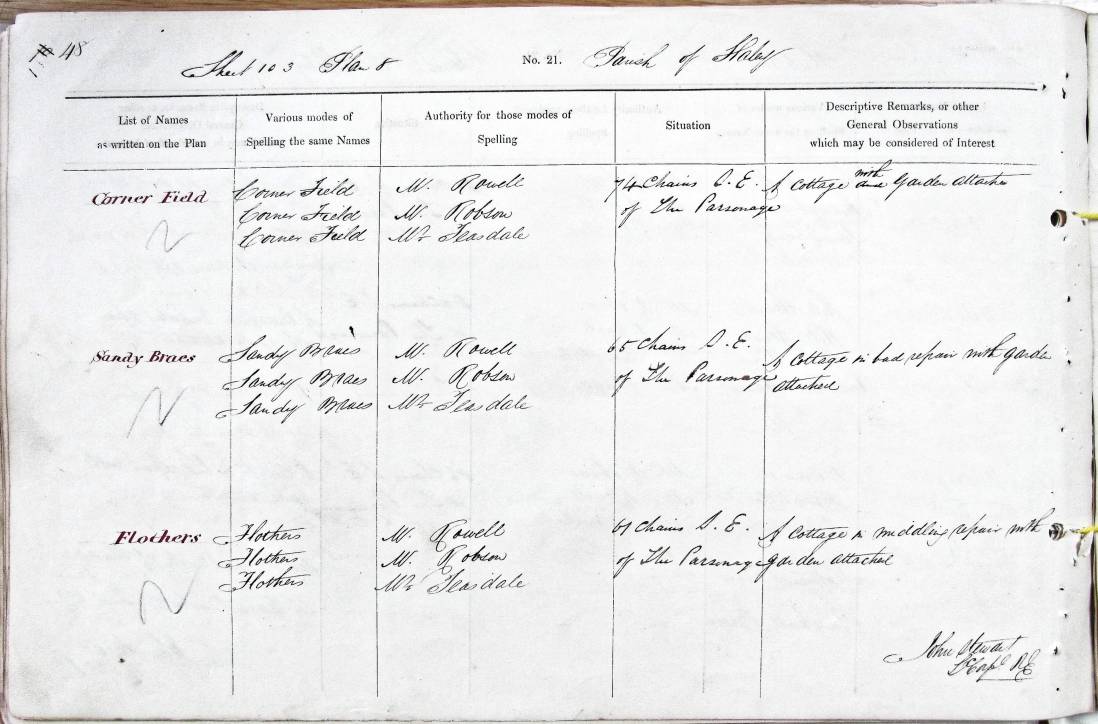 48
Sheet 103 Plan 8 No. 21. Parish of Slaley
List of Names
as written on the Plan
Various modes of
Spelling the same Names
Authority for those modes of
Spelling
Situation
Descriptive Remarks, or other
General Observations
which may be considered of Interest
Corner Field
Corner Field
Corner Field
Corner Field
W. Rowell
W. Robson
Wm Teasdale
74 Chains S. E.
of The Parsonage
A Cottage with Garden attached
Sandy Braes
Sandy Braes
Sandy Braes
Sandy Braes
W. Rowell
W. Robson
Wm Teasdale
65 Chains S. E.
of The Parsonage
A Cottage in bad repair with garden
attached
Flothers
Flothers
Flothers
Flothers
W. Rowell
W. Robson
Wm Teasdale
Chains S. E.
of The Parsonage
A Cottage in middling repair with
garden attached
John Stewart
L Corpl. RE